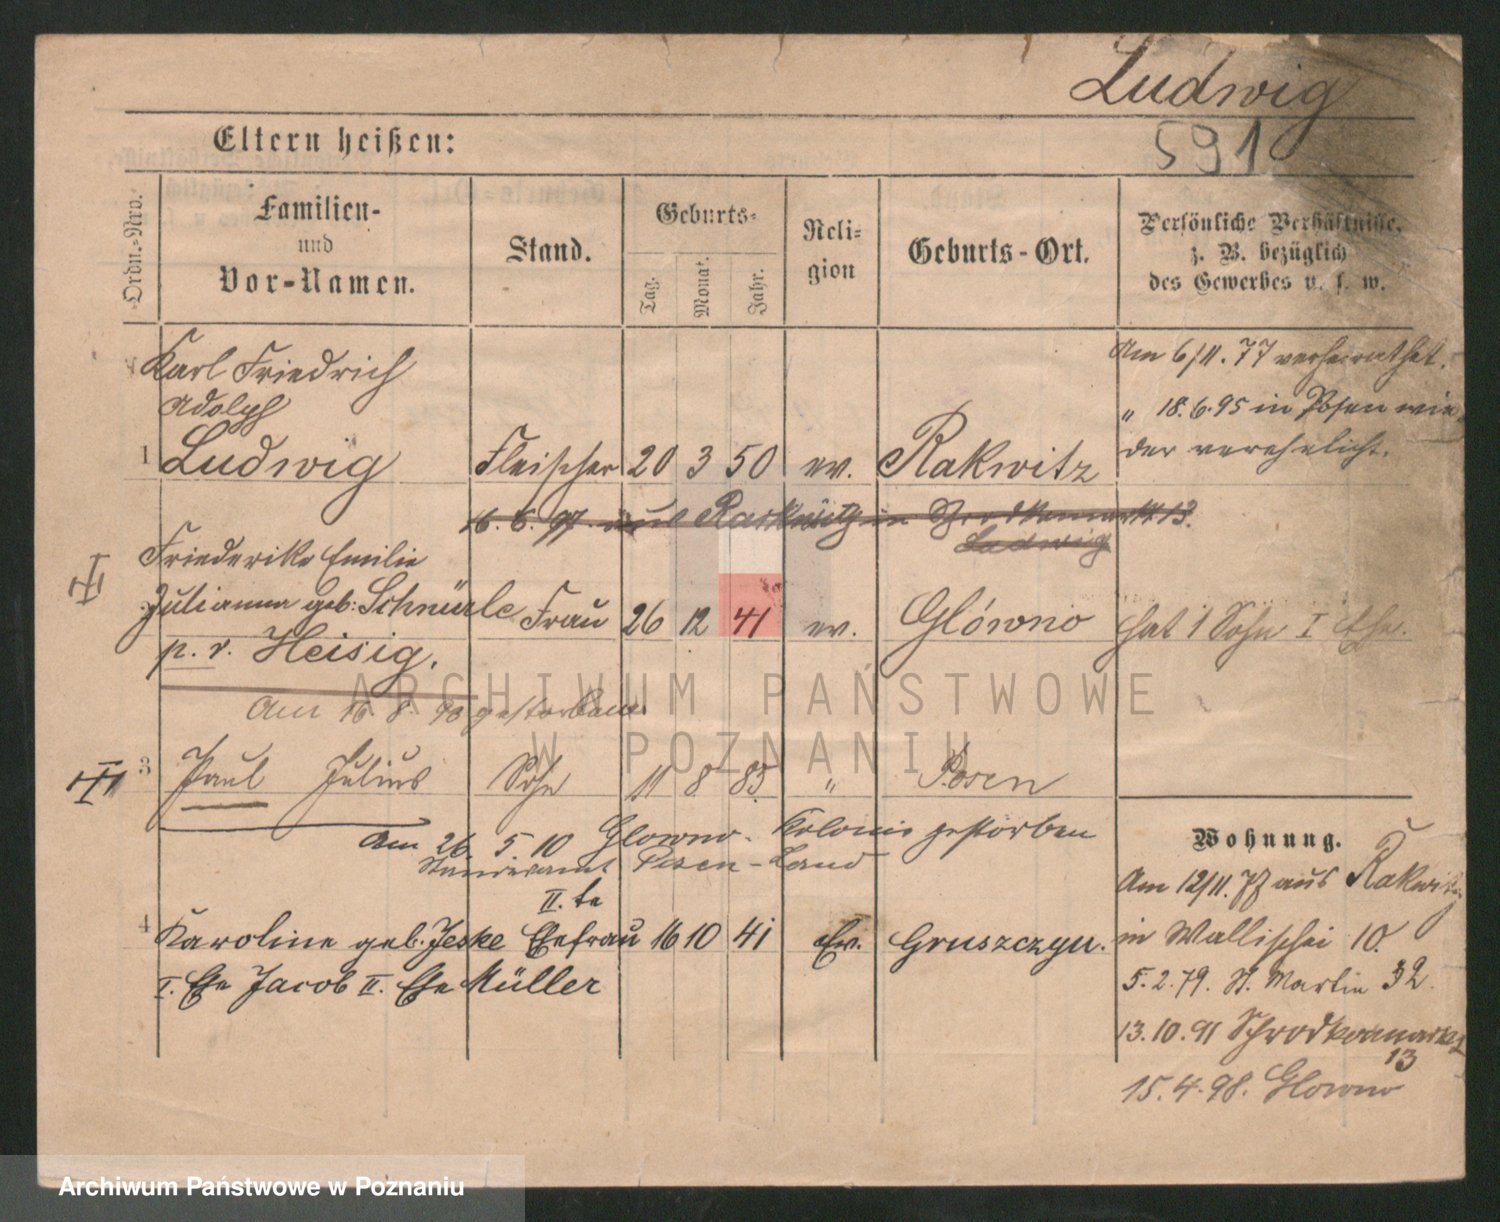 Ludwig
591
Eltern heißen:
Ordn.-Nro.
Familien-
und
Vor-Namen.
Stand.
Geburts-
Tag.
Monat.
Jahr.
Reli-
gion
Geburts-Ort.
Persönliche Verhältnisse,
z. B. bezüglich
des Gewerbes u. s. w.
Karl Friedrich
Adolph
1 Ludwig Fleischer 20 3 50 ev. Rakwitz
Am 6/11. 77 verheirathet.
„ 18.6.95 in Posen wie
der verehelicht.
16. 6. 97. aus Rackwitz in Schrodkamarkt 13.
Ludwig
Friederike Emilie
Julianna geb: Schnürle Frau 26 12 41 ev. Glówno hat 1 Sohn I Ehe.
p. v. Heisig.
Am 16. 8. 90 gestorben.
3 Paul Julius Sohn 11 8 83 „ Posen
Am 26. 5 10 Glowno-Kolonie gestorben
Standesamt Posen-Land
II.te
4 Karoline geb. Jeske Ehefrau 16 10 41 Ev. Gruszczyn.
I. Ehe Jacob II. Ehe Müller
Wohnung.
Am 12/11. 77 aus Rakwitz
in Wallischei 10.
5.2.79. St. Martin 32.
13.10.91 Schrodkamarkt
13
15.4.98. Glowno
ARCHIWUM PAŃSTWOWE
W POZNANIU
Archiwum Państwowe w Poznaniu